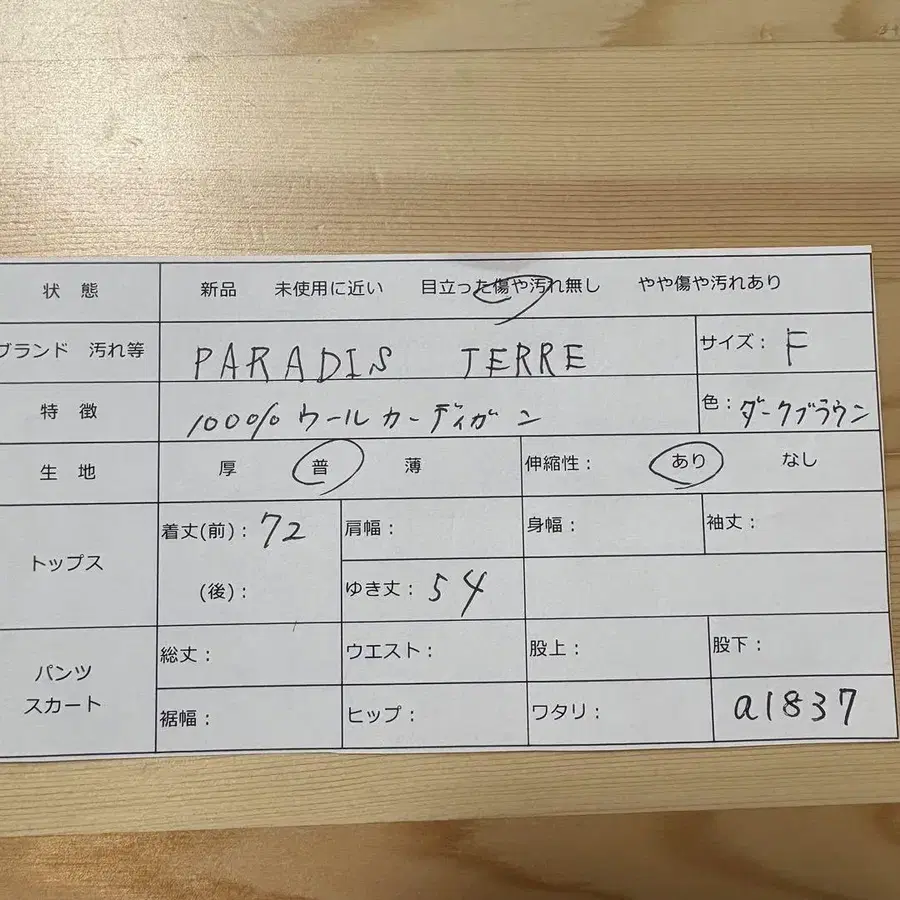 状 態 新品 未使用に近い 目立った傷や汚れ無し やや傷や汚れあり
ブランド 汚れ等 PARADIS TERRE サイズ: F
特 徴 100% ウールカーディガン 色: ダークブラウン
生 地 厚 普 薄 伸縮性: あり なし
トップス
着丈(前): 72 肩幅: 身幅: 袖丈:
(後): ゆき丈: 54
パンツ
スカート
総丈: ウエスト: 股上: 股下:
裾幅: ヒップ: ワタリ: a1837